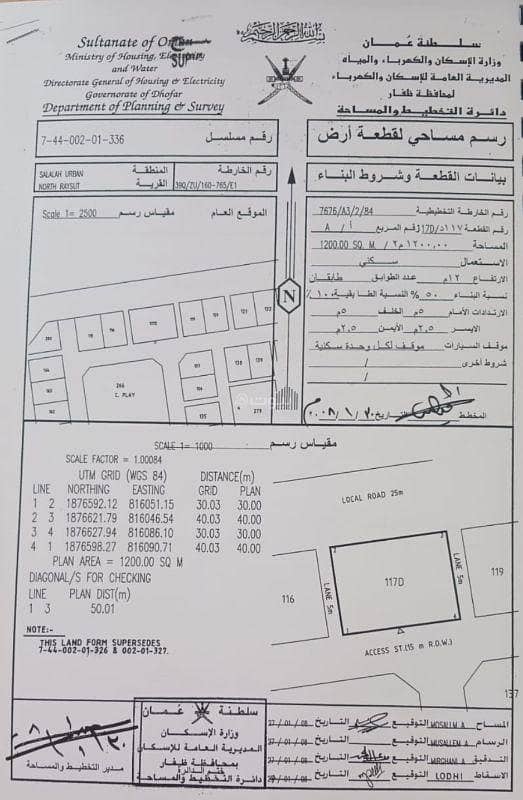 بسم الله الرحمن الرحيم
Sultanate of Oman
Ministry of Housing, Electricity
and Water
Directorate General of Housing & Electricity
Governorate of Dhofar
Department of Planning & Survey
سلطنة عُمان
وزارة الإسكان والكهرباء والمياه
المديرية العامة للإسكان والكهرباء
لمحافظة ظفار
دائرة التخطيط والمساحة
رقم مسلسل 7-44-002-01-336
رسم مساحي لقطعة أرض
المنطقة SALALAH URBAN
القرية NORTH RAYSUT
رقم الخارطة
39Q/ZU/160-765/E1
بيانات القطعة وشروط البناء
الموقع العام
مقياس رسم Scale 1= 2500
N
266
C. PLAY
رقم الخارطة التخطيطية 7676/A3/2/84
رقم القطعة ١١٧د/17D رقم المربع أ / A
المساحة ١٢٠٠,٠٠ م٢ / 1200.00 SQ. M
الاستعمال سكني
الارتفاع ١٢م عدد الطوابق طابقان
نسبة البناء ٥٠% النسبة الطابقية ١,٠٠
الارتدادات الأمام ٥م الخلف ٥م
الايسر ٢,٥م الأيمن ٢,٥م
موقف السيارات موقف لكل وحدة سكنية
شروط اخرى /
/
المخطط التاريخ ٢٠ / ١ / ٢٠٠٨م
مقياس رسم SCALE 1= 1000
SCALE FACTOR = 1.00084
UTM GRID (WGS 84) DISTANCE(m)
LINE NORTHING EASTING GRID PLAN
1 2 1876592.12 816051.15 30.03 30.00
2 3 1876621.79 816046.54 40.03 40.00
3 4 1876627.94 816086.10 30.03 30.00
4 1 1876598.27 816090.71 40.03 40.00
PLAN AREA = 1200.00 SQ M
DIAGONAL/S FOR CHECKING
LINE PLAN DIST(m)
1 3 50.01
NOTE:-
THIS LAND FORM SUPERSEDES
7-44-002-01-326 & 002-01-327.
LOCAL ROAD 25m
2
3
1
4
116
LANE 5m
117D
LANE 5m
119
ACCESS ST.(15 m R.O.W.)
137
مدير التخطيط والمساحة
سلطنة عُمان
وزارة الإسكان
المديرية العامة للإسكان
بمحافظة ظفار
ختم الدائرة
دائرة التخطيط والمساحة
المساح MOSALLM A. التوقيع التاريخ 27/01/08
الرسام MUSALLEM A. التوقيع التاريخ 27/01/08
التدقيق MIRGHANI A. التوقيع التاريخ 27/01/08
الاسقاط LODHI التوقيع التاريخ /01/08